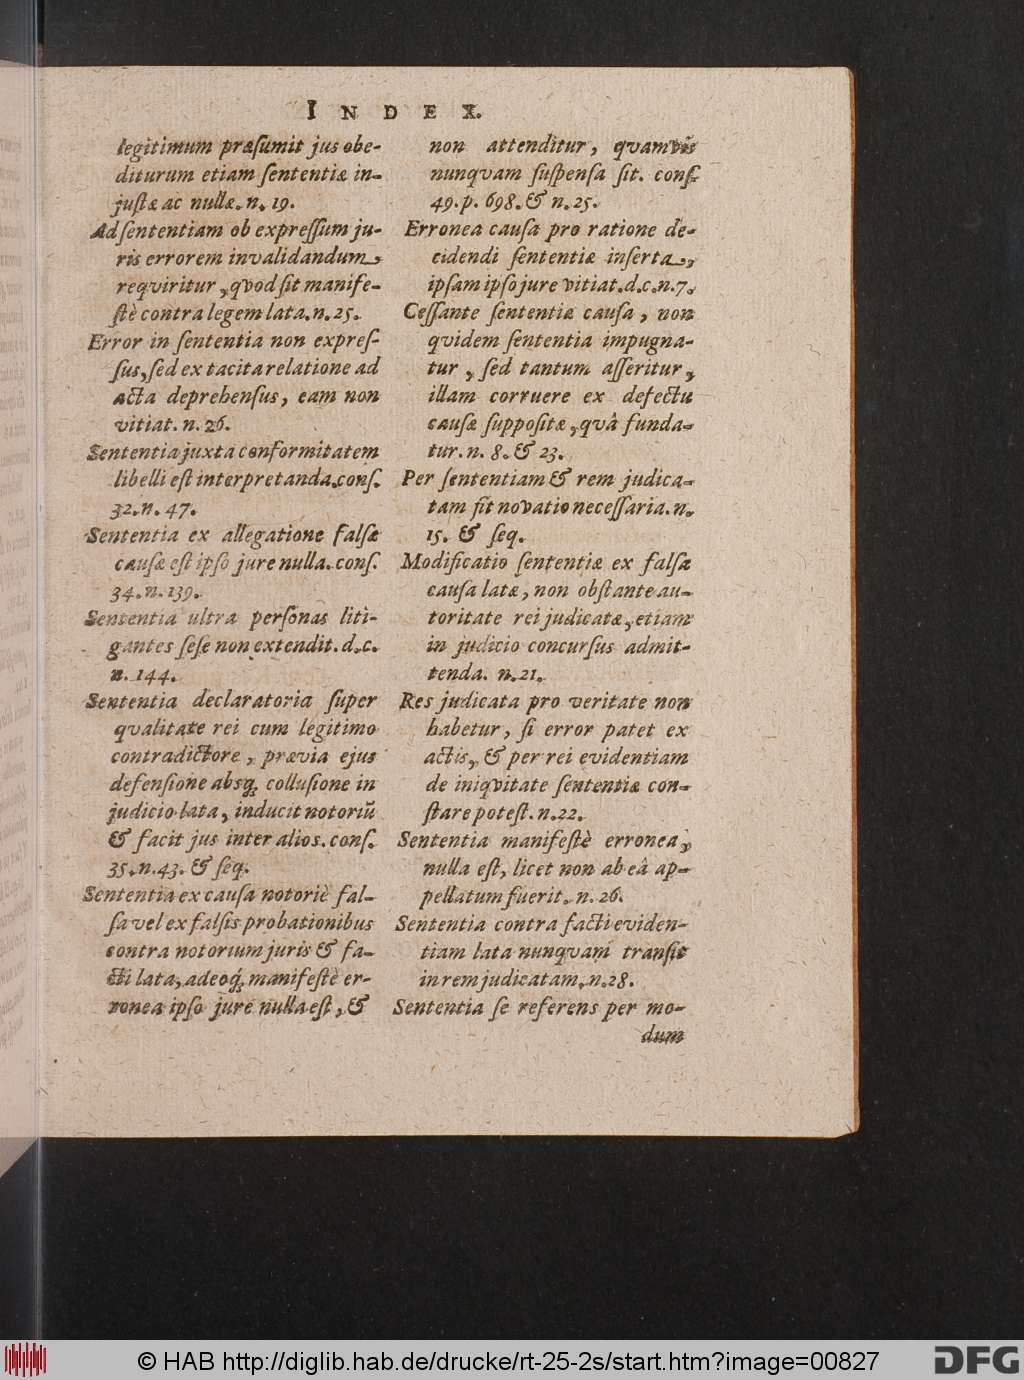 INDEX.
legitimum præsumit jus obe-
diturum etiam sententiæ in-
justæ ac nullæ. n. 19.
Ad sententiam ob expressum ju-
ris errorem invalidandum,
reqviritur, qvod sit manife-
stè contra legem lata. n. 25.
Error in sententia non expres-
sus, sed ex tacita relatione ad
acta deprehensus, eam non
vitiat. n. 26.
Sententia juxta conformitatem
libelli est interpretanda. cons.
32. n. 47.
Sententia ex allegatione falsæ
causæ est ipso jure nulla. cons.
34. n. 139.
Sententia ultra personas liti-
gantes sese non extendit. d. c.
n. 144.
Sententia declaratoria super
qvalitate rei cum legitimo
contradictore, prævia ejus
defensione absq; collusione in
judicio lata, inducit notoriũ
& facit jus inter alios. cons.
35. n. 43. & seq.
Sententia ex causa notoriè fal-
sa vel ex falsis probationibus
contra notorium juris & fa-
cti lata, adeoq; manifestè er-
ronea ipso jure nulla est, &
non attenditur, qvamvis
nunqvam suspensa sit. cons.
49. p. 698. & n. 25.
Erronea causa pro ratione de-
cidendi sententiæ inserta,
ipsam ipso jure vitiat. d. c. n. 7.
Cessante sententiæ causa, non
qvidem sententia impugna-
tur, sed tantum asseritur,
illam corruere ex defectu
causæ suppositæ, qvâ funda-
tur. n. 8. & 23.
Per sententiam & rem judica-
tam fit novatio necessaria. n.
15. & seq.
Modificatio sententiæ ex falsa
causa latæ, non obstante au-
toritate rei judicatæ, etiam
in judicio concursus admit-
tenda. n. 21.
Res judicata pro veritate non
habetur, si error patet ex
actis, & per rei evidentiam
de iniqvitate sententiæ con-
stare potest. n. 22.
Sententia manifestè erronea,
nulla est, licet non ab eâ ap-
pellatum fuerit. n. 26.
Sententia contra facti eviden-
tiam lata nunqvam transit
in rem judicatam. n. 28.
Sententia se referens per mo-
dum
© HAB http://diglib.hab.de/drucke/rt-25-2s/start.htm?image=00827
DFG